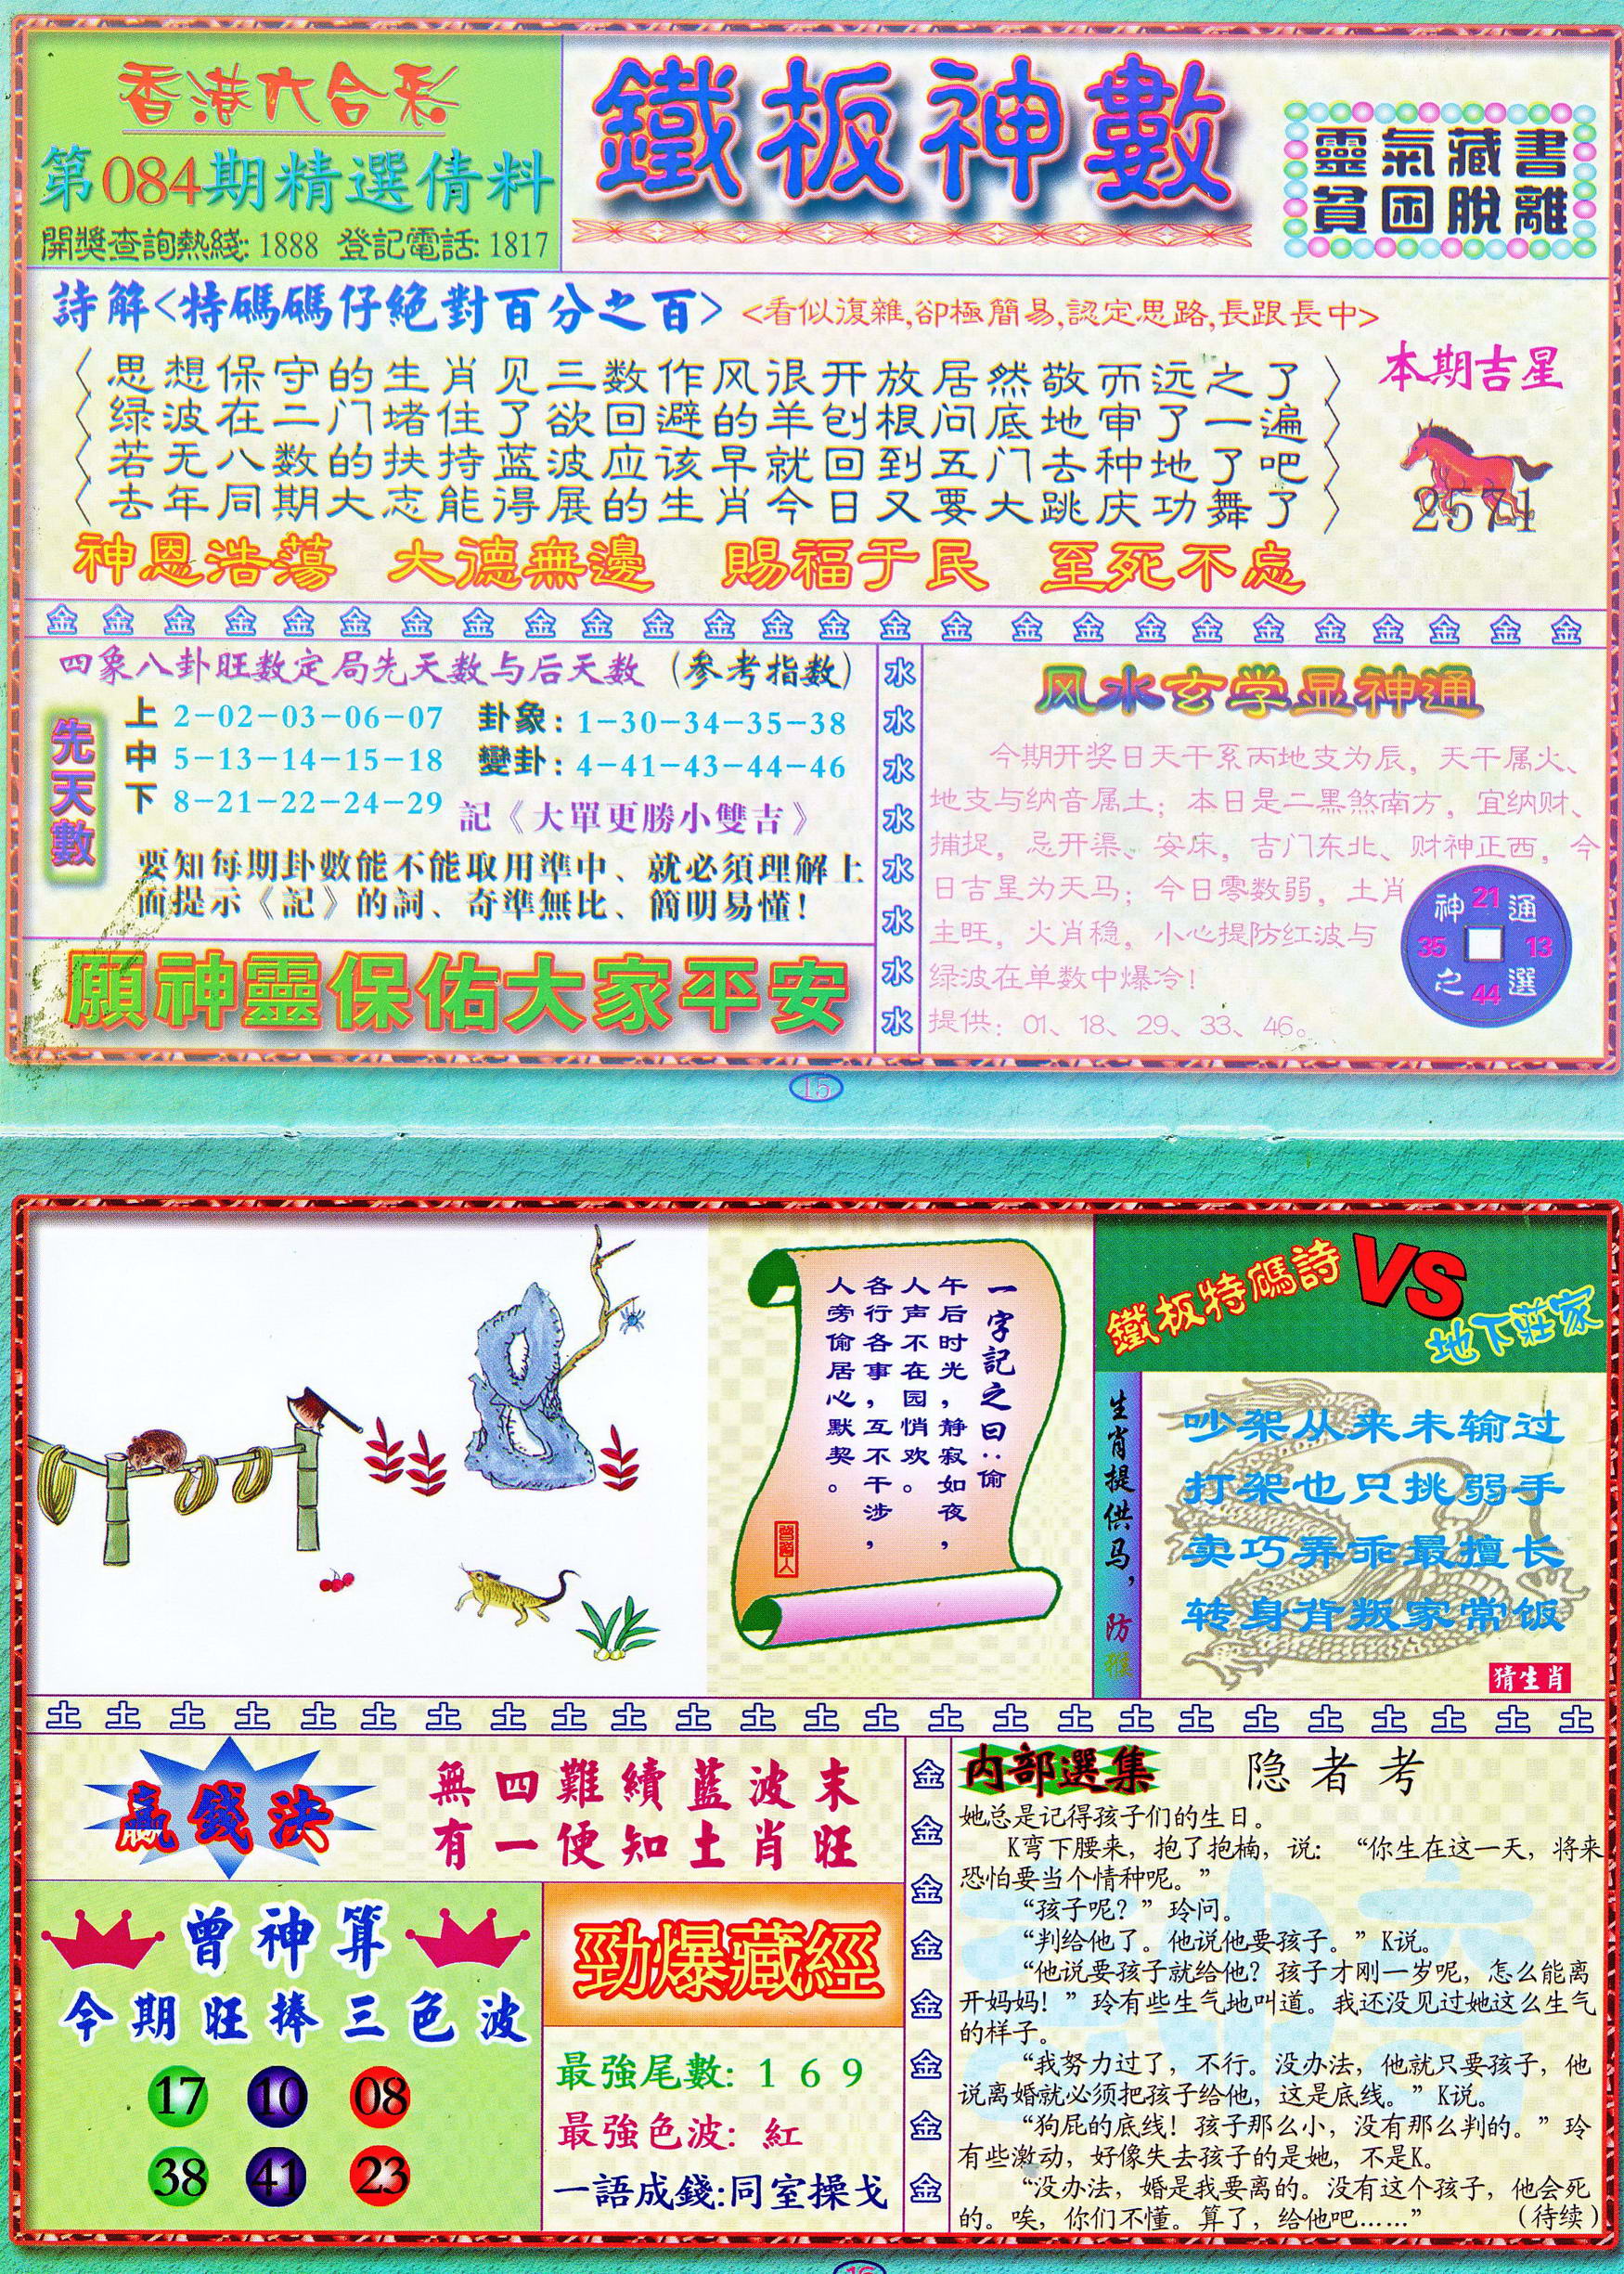 香港六合彩
第084期精選倩料
開獎查詢熱綫: 1888 登記電話: 1817
鐵板神數
靈氣藏書
貧困脫離
詩解<特碼碼仔絕對百分之百> <看似復雜,卻極簡易,認定思路,長跟長中>
思想保守的生肖见三数作风很开放居然敬而远之了
绿波在二门堵住了欲回避的羊刨根问底地审了一遍
若无八数的扶持蓝波应该早就回到五门去种地了吧
去年同期大志能得展的生肖今日又要大跳庆功舞了
本期吉星
2571
神恩浩蕩 大德無邊 賜福于民 至死不忘
金 金 金 金 金 金 金 金 金 金 金 金 金 金 金 金 金 金 金 金 金 金 金 金 金 金
四象八卦旺数定局先天数与后天数 (参考指数)
先天數
上 2-02-03-06-07 卦象: 1-30-34-35-38
中 5-13-14-15-18 變卦: 4-41-43-44-46
下 8-21-22-24-29 記《大單更勝小雙吉》
要知每期卦數能不能取用準中、就必須理解上
面提示《記》的詞、奇準無比、簡明易懂!
願神靈保佑大家平安
水 水 水 水 水 水 水 水
风水玄学显神通
今期开奖日天干系丙地支为辰，天干属火、
地支与纳音属土；本日是二黑煞南方，宜纳财、
捕捉，忌开渠、安床，吉门东北、财神正西，今
日吉星为天马；今日零数弱，土肖
主旺，火肖稳，小心提防红波与
绿波在单数中爆冷！
提供：01、18、29、33、46。
神 21 通
35 13
之 44 選
15
一字記之曰：偷
午后时光，静寂如夜，
人声不在园悄欢。
各行各事，互不干涉，
人旁偷居心默契。
鐵板特碼詩
VS
地下莊家
生肖提供马，防猴
吵架从来未输过
打架也只挑弱手
卖巧弄乖最擅长
转身背叛家常饭
猜生肖
土 土 土 土 土 土 土 土 土 土 土 土 土 土 土 土 土 土 土 土 土 土 土 土 土
贏錢決
無四難續藍波末
有一便知土肖旺
曾神算
今期旺捧三色波
17 10 08
38 41 23
勁爆藏經
最強尾數: 1 6 9
最強色波: 紅
一語成錢:同室操戈
金 金 金 金 金 金 金 金
内部選集 隐者考
她总是记得孩子们的生日。
K弯下腰来，抱了抱楠，说：“你生在这一天，将来
恐怕要当个情种呢。”
“孩子呢？”玲问。
“判给他了。他说他要孩子。”K说。
“他说要孩子就给他？孩子才刚一岁呢，怎么能离
开妈妈！”玲有些生气地叫道。我还没见过她这么生气
的样子。
“我努力过了，不行。没办法，他就只要孩子，他
说离婚就必须把孩子给他，这是底线。”K说。
“狗屁的底线！孩子那么小，没有那么判的。”玲
有些激动，好像失去孩子的是她，不是K。
“没办法，婚是我要离的。没有这个孩子，他会死
的。唉，你们不懂。算了，给他吧……”（待续）
16